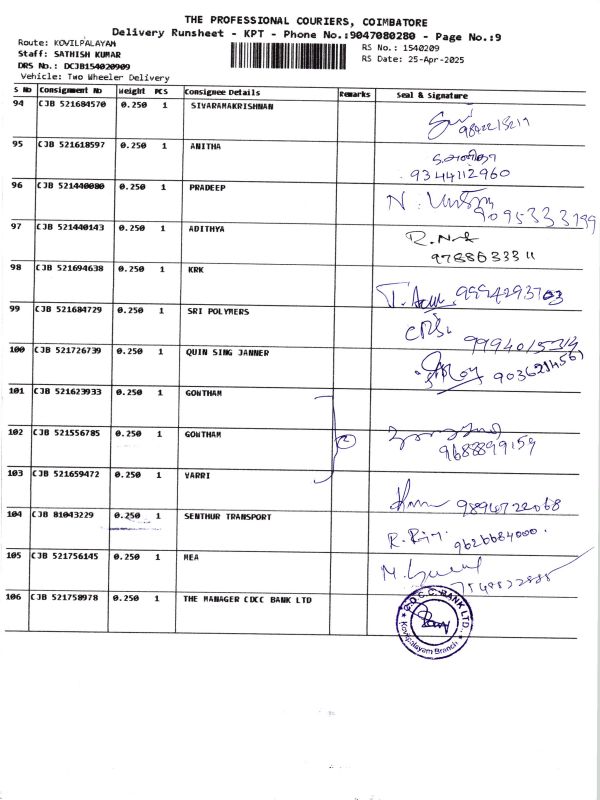 THE PROFESSIONAL COURIERS, COIMBATORE
Delivery Runsheet - KPT - Phone No.:9047080280 - Page No.:9
Route: KOVILPALAYAM
RS No.: 1540209
Staff: SATHISH KUMAR
RS Date: 25-Apr-2025
DRS No.: DCJB154020909
Vehicle: Two Wheeler Delivery
S No Consignment No Weight PCS Consignee Details Remarks Seal & Signature
94 CJB 521684570 0.250 1 SIVARAMAKRISHNAN
95 CJB 521618597 0.250 1 ANITHA
9344112960
96 CJB 521440080 0.250 1 PRADEEP
N.
9095333199
97 CJB 521440143 0.250 1 ADITHYA
R.
98 CJB 521694638 0.250 1 KRK
9994293703
99 CJB 521684729 0.250 1 SRI POLYMERS
100 CJB 521726739 0.250 1 QUIN SING JANNER
9036214567
101 CJB 521623933 0.250 1 GOWTHAM
102 CJB 521556785 0.250 1 GOWTHAM
2
9688899159
103 CJB 521659472 0.250 1 VARRI
9894722068
104 CJB 81043229 0.250 1 SENTHUR TRANSPORT
R.
9626684000.
105 CJB 521756145 0.250 1 MEA
M.
106 CJB 521758978 0.250 1 THE MANAGER CDCC BANK LTD
C.D.C.C. BANK LTD.
Kovilpalayam Branch